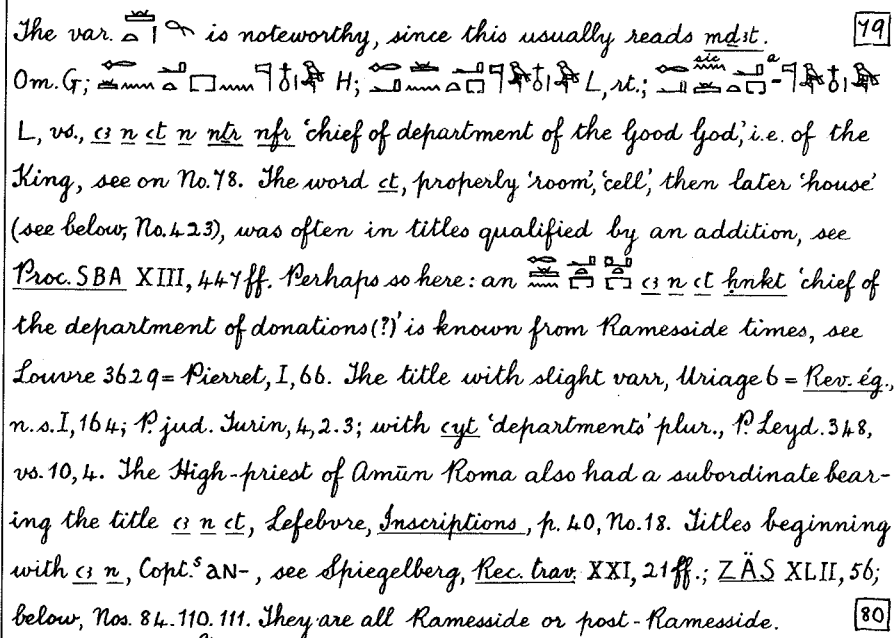 The var. is noteworthy, since this usually reads mḏꜣt. 79
Om. G; H; L, rt.; sic a
L, vs., ꜥꜣ n ꜥt n nṯr nfr 'chief of department of the Good God', i.e. of the
King, see on No. 78. The word ꜥt, properly 'room', 'cell', then later 'house'
(see below, No. 423), was often in titles qualified by an addition, see
Proc. SBA XIII, 447 ff. Perhaps so here: an ꜥꜣ n ꜥt ḥnkt 'chief of
the department of donations(?)' is known from Ramesside times, see
Louvre 3629 = Pierret, I, 66. The title with slight varr, Uriage 6 = Rev. ég.,
n.s. I, 164; P. jud. Turin, 4, 2. 3; with ꜥyt 'departments' plur., P. Leyd. 348,
vs. 10, 4. The High-priest of Amūn Roma also had a subordinate bear-
ing the title ꜥꜣ n ꜥt, Lefebvre, Inscriptions, p. 40, No. 18. Titles beginning
with ꜥꜣ n, Copt. ˢ ⲁⲛ-, see Spiegelberg, Rec. trav. XXI, 21 ff.; ZÄS XLII, 56;
below, Nos. 84. 110. 111. They are all Ramesside or post-Ramesside. 80